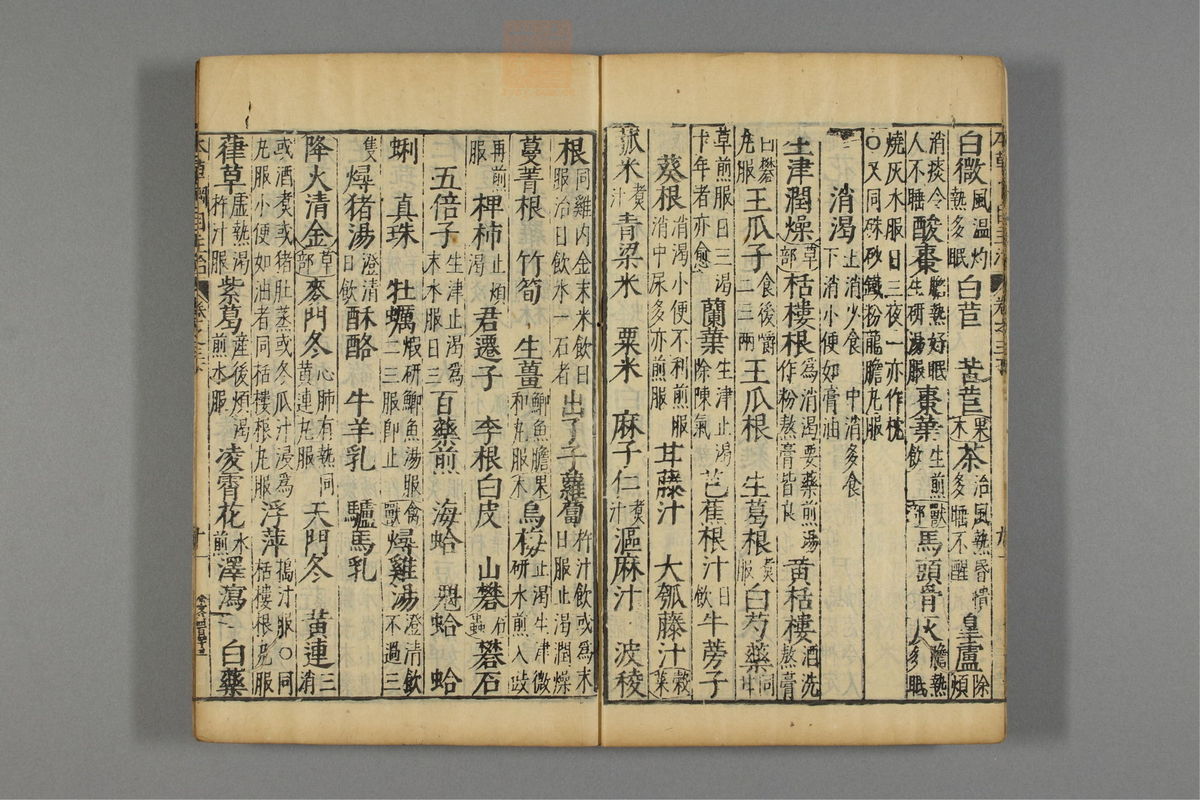 白薇風溫灼熱多眠白苣 苦苣果木茶治風熱昏憒多睡不醒皇蘆除煩
消痰令人不睡酸棗膽熱好眠生研湯服棗葉生煎飲獸部馬頭骨灰膽熱多眠
燒灰水服日三夜一亦作枕
○又同硃砂鐵粉龍膽丸服
消渴上消少食 中消多食下消小便如膏油
生津潤燥草部栝樓根為消渴要藥煎湯作粉熬膏皆良 黃栝樓酒洗熬膏
白礬丸服 王瓜子食後嚼二三兩 王瓜根 生葛根煮服白芍藥同甘
草煎服日三渴十年者亦愈 蘭葉生津止渴除陳氣芭蕉根汁日飲牛蒡子
葵根消渴小便不利煎服消中尿多亦煎服 甘藤汁 大瓠藤汁穀菜
菰米煮汁青粱米 粟米 麻子仁煮汁漚麻汁 波稜
根同雞內金末米飲日服治日飲水一石者 出了子蘿蔔杵汁飲或為末日服止渴潤燥
蔓菁根 竹筍 生薑鯽魚膽和丸服果木烏梅止渴生津微研水煎入豉
再煎服 椑柿止煩渴 君遷子 李根白皮 山礬石蟲礬石
五倍子生津止渴為末水服日三百藥煎 海蛤 魁蛤 蛤
蜊 真珠 牡蠣鰕研鯽魚湯服二三服即止禽獸燖雞湯澄清飲不過三
隻 燖豬湯澄清日飲酥酪 牛羊乳 驢馬乳
降火清金草部麥門冬心肺有熱同黃連丸服 天門冬 黃連三消
或酒煮或豬肚蒸或冬瓜汁浸為丸服小便如油者同栝樓根丸服浮萍搗汁服○同栝樓根丸服
葎草虛熱渴杵汁服紫葛產後煩渴煎水服 凌霄花水煎澤瀉 白藥